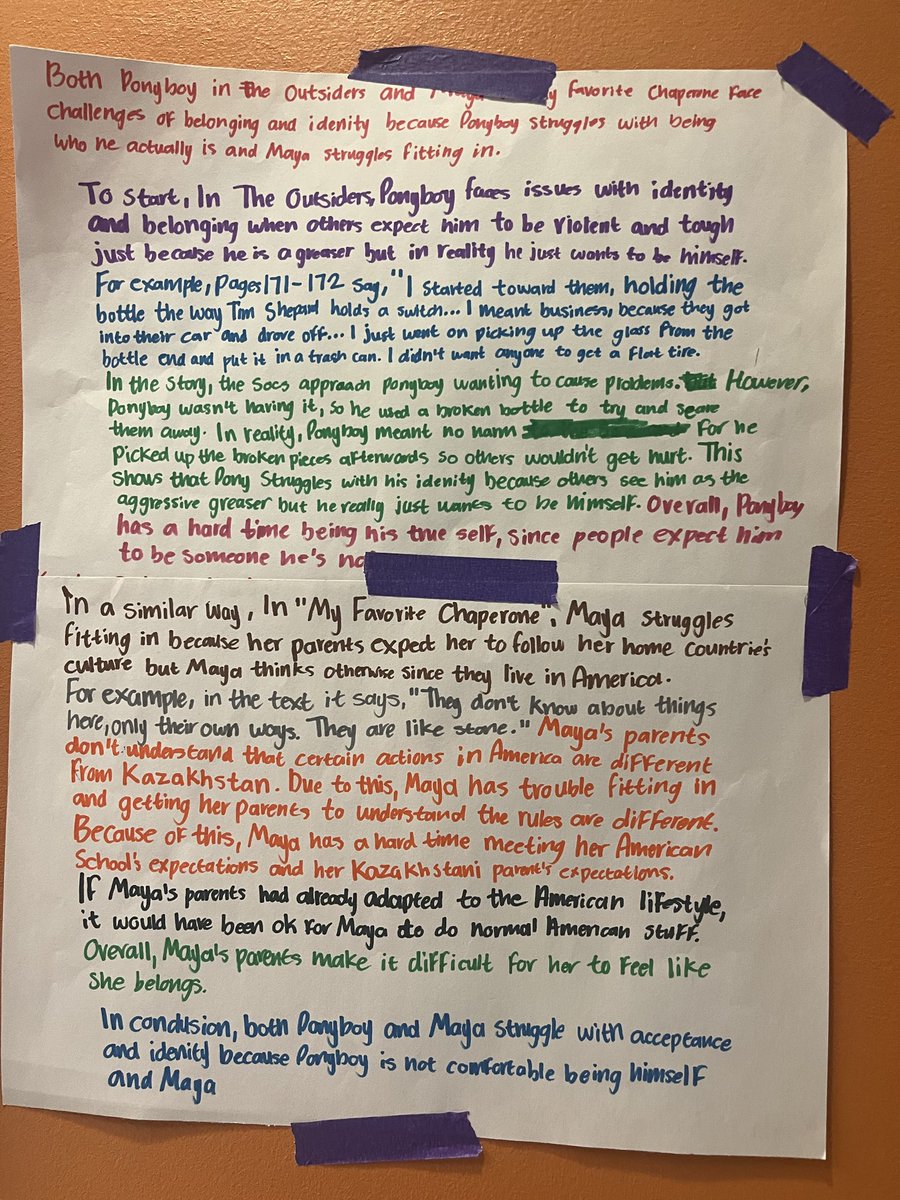 Both Ponyboy in the Outsiders and Favorite Chaperone Face
challenges of belonging and idenity because Ponyboy struggles with being
who he actually is and Maya struggles fitting in.
To start, In The Outsiders, Ponyboy faces issues with identity
and belonging when others expect him to be violent and tough
just because he is a greaser but in reality he just wants to be himself.
For example, Pages 171-172 say, "I started toward them, holding the
bottle the way Tim Shepard holds a switch... I meant business, because they got
into their car and drove off... I just went on picking up the glass from the
bottle end and put it in a trash can. I didn't want anyone to get a flat tire.
In the story, the Socs approach Ponyboy wanting to cause problems. However,
Ponyboy wasn't having it, so he used a broken bottle to try and scare
them away. In reality, Ponyboy meant no harm For he
picked up the broken pieces afterwards so others wouldn't get hurt. This
shows that Pony Struggles with his idenity because others see him as the
aggressive greaser but he really just wants to be himself. Overall, Ponyboy
has a hard time being his true self, since people expect him
to be someone he's
In a similar way, In "My Favorite Chaperone", Maya struggles
fitting in because her parents expect her to follow her home countrie's
culture but Maya thinks otherwise since they live in America.
For example, in the text it says, "They don't know about things
here, only their own ways. They are like stone." Maya's parents
don't understand that certain actions in America are different
from Kazakhstan. Due to this, Maya has trouble fitting in
and getting her parents to understand the rules are different.
Because of this, Maya has a hard time meeting her American
School's expectations and her Kazakhstani parent's expectations.
If Maya's parents had already adapted to the American lifestyle,
it would have been ok for Maya to do normal American stuff.
Overall, Maya's parents make it difficult for her to feel like
she belongs.
In conclusion, both Ponyboy and Maya struggle with acceptance
and idenity because Ponyboy is not comfortable being himself
and Maya